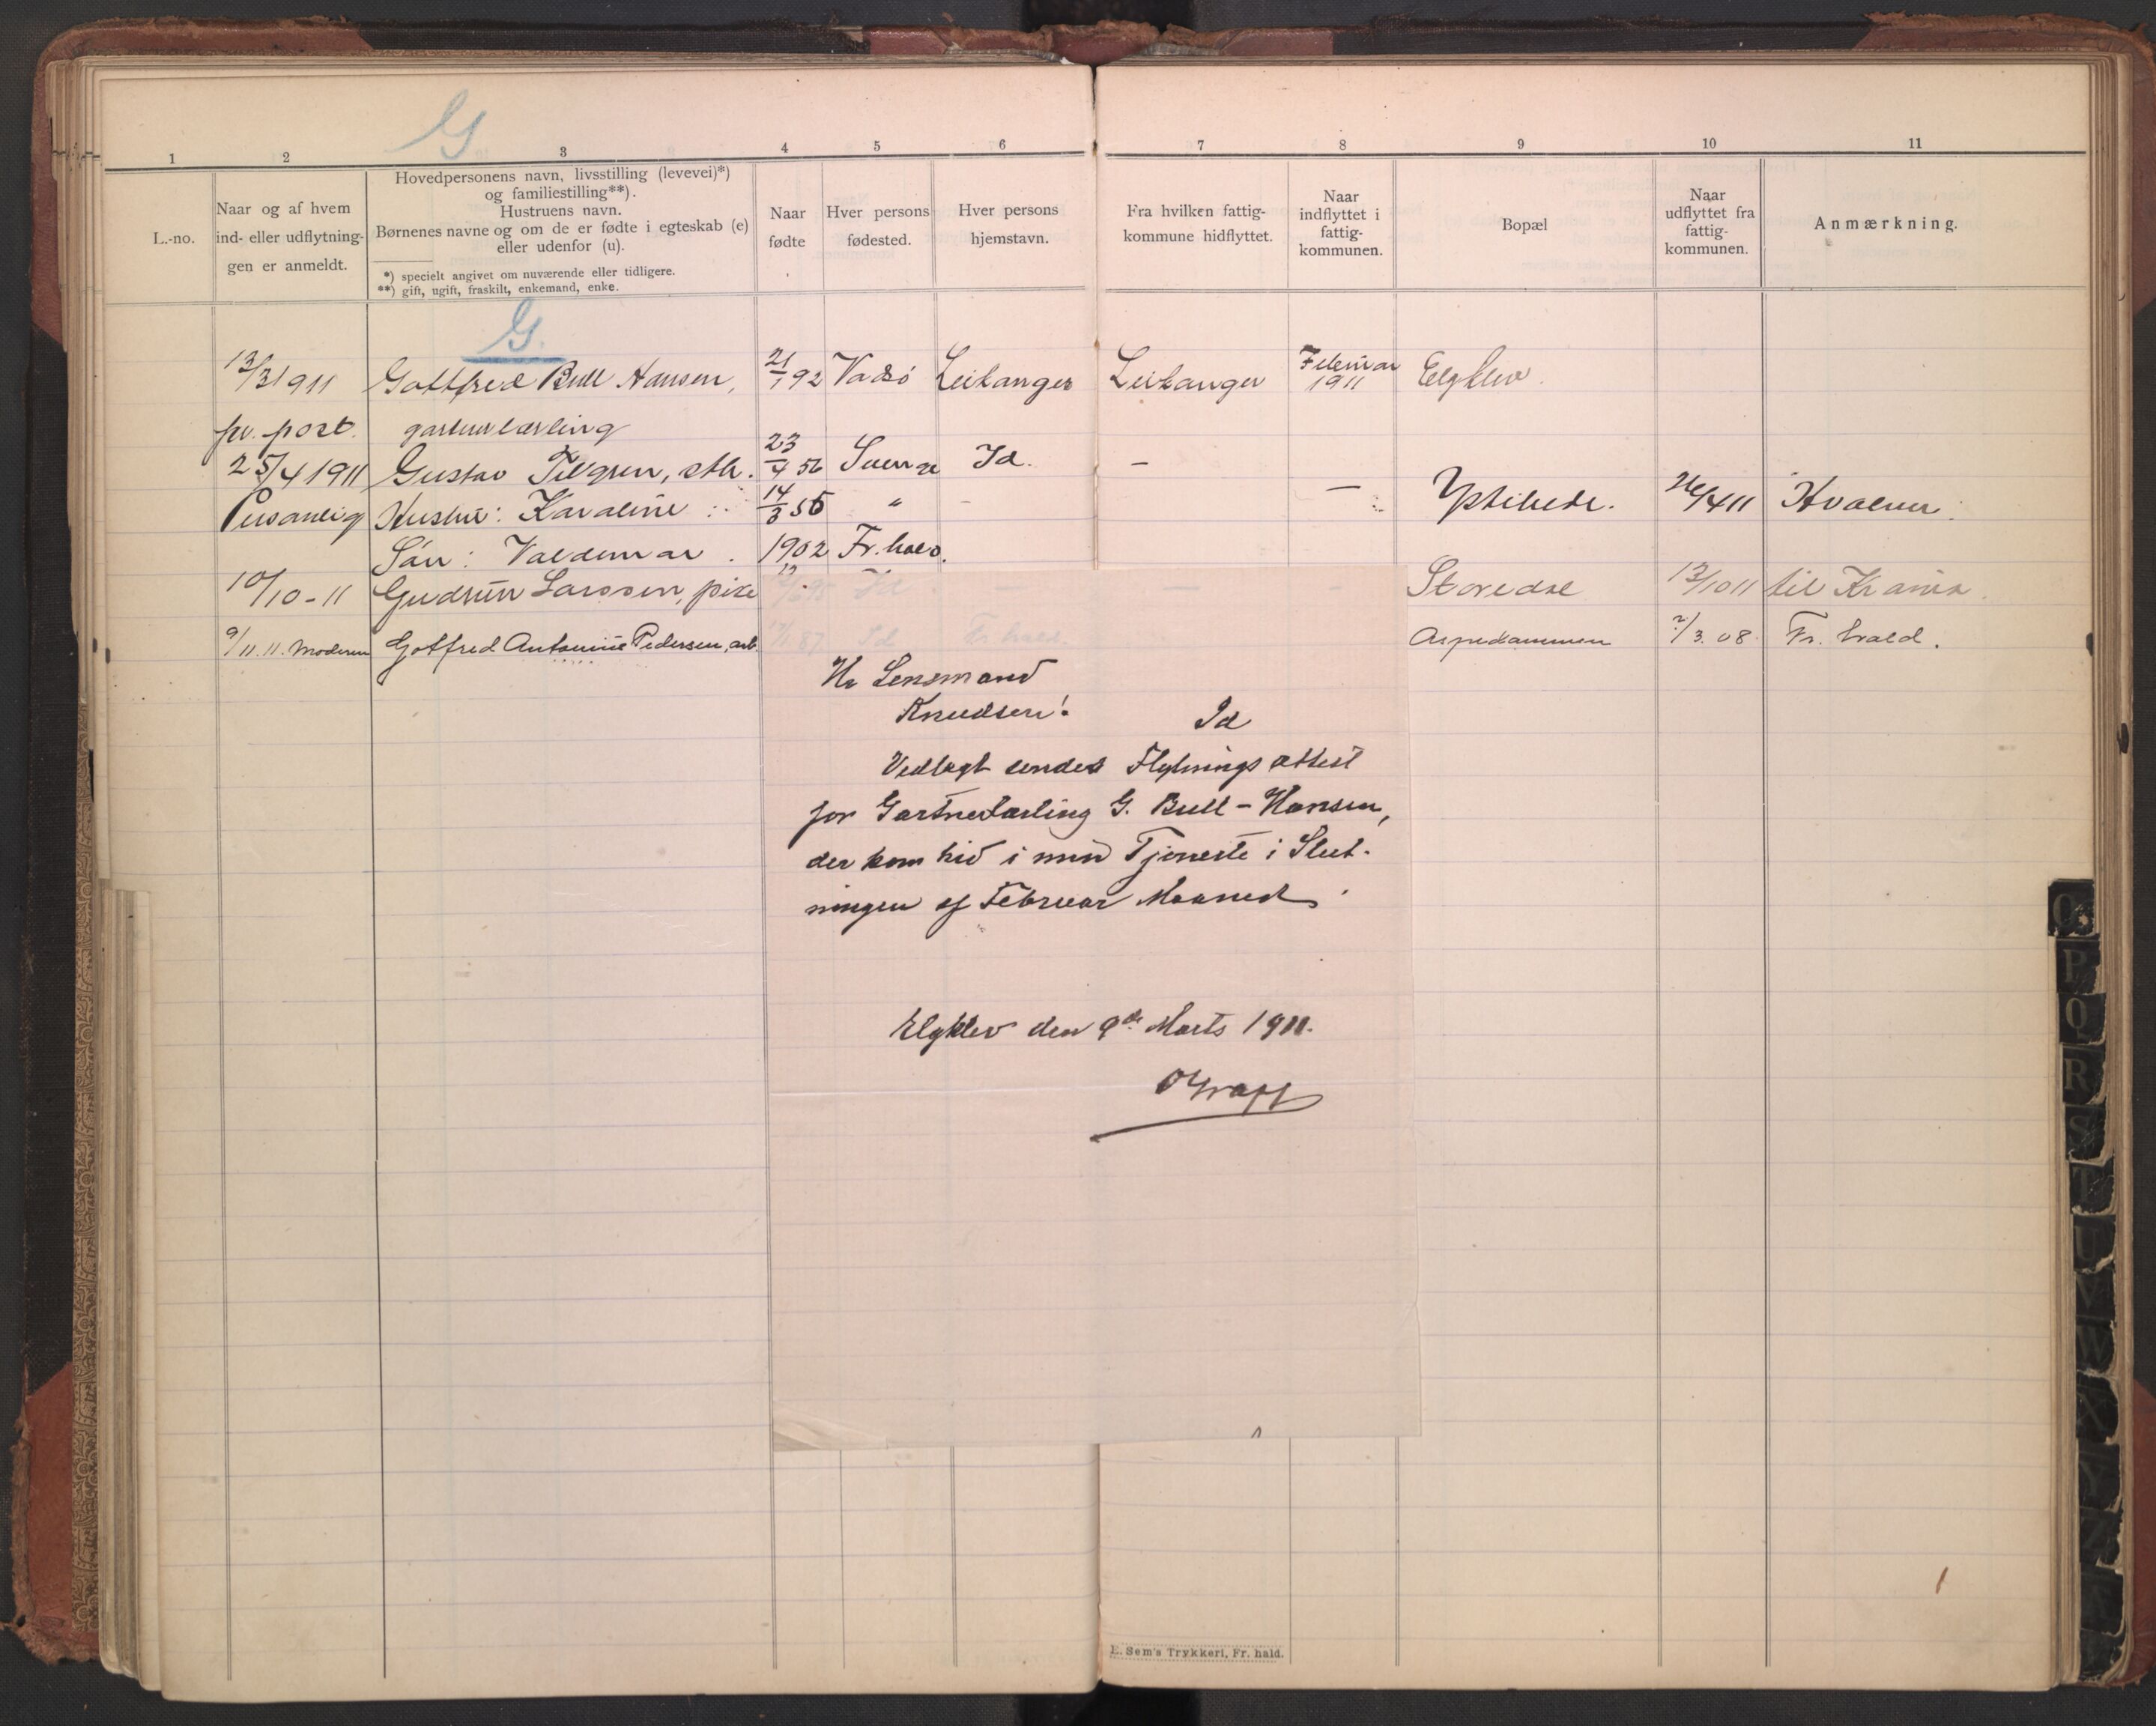 G
1 2 3 4 5 6 7 8 9 10 11
L.-no.
Naar og af hvem
ind- eller udflytnin-
gen er anmeldt.
Hovedpersonens navn, livsstilling (levevei)*)
og familiestilling**).
Hustruens navn.
Børnenes navne og om de er fødte i egteskab (e)
eller udenfor (u).
*) specielt angivet om nuværende eller tidligere.
**) gift, ugift, fraskilt, enkemand, enke.
Naar
fødte
Hver persons
fødested.
Hver persons
hjemstavn.
Fra hvilken fattig-
kommune hidflyttet.
Naar
indflyttet i
fattig-
kommunen.
Bopæl
Naar
udflyttet fra
fattig-
kommunen.
Anmærkning.
G.
13/3 1911 Gottfred Bull Hansen, 21/1 92 Vadsö Leikanger Leikanger Februar 1911 Elgklev.
pr. post. gartnerlærling
25/4 1911 Gustav Tilgren, sth. 23/4 56 Sverige Id. — —
Personlig Hustru: Karoline : 14/3 55 " — Ystehede. 26/4 11 Hvaler.
Sön: Valdemar. 1902 Fr.hald.
10/10-11 Gudrun Larssen, pike Id — — Storedal 13/10 11 til Krania.
9/11.11. Moderen Gotfred Antonius Pedersen, arb. 87 Id Fr.hald. Aspedammen ?/3.08. Fr.hald.
Hr Lensmand
Knudsen!
Id
Vedlagt sendes Flytningsattest
for Gartnerlærling G. Bull-Hansen,
der kom hid i min Tjeneste i Slut-
ningen af Februar Maaned.
Elgklev den 9de Marts 1911.
E. Sem's Trykkeri, Fr. hald.
O
P
Q
R
S
T
U
V
W
X
Y
Z